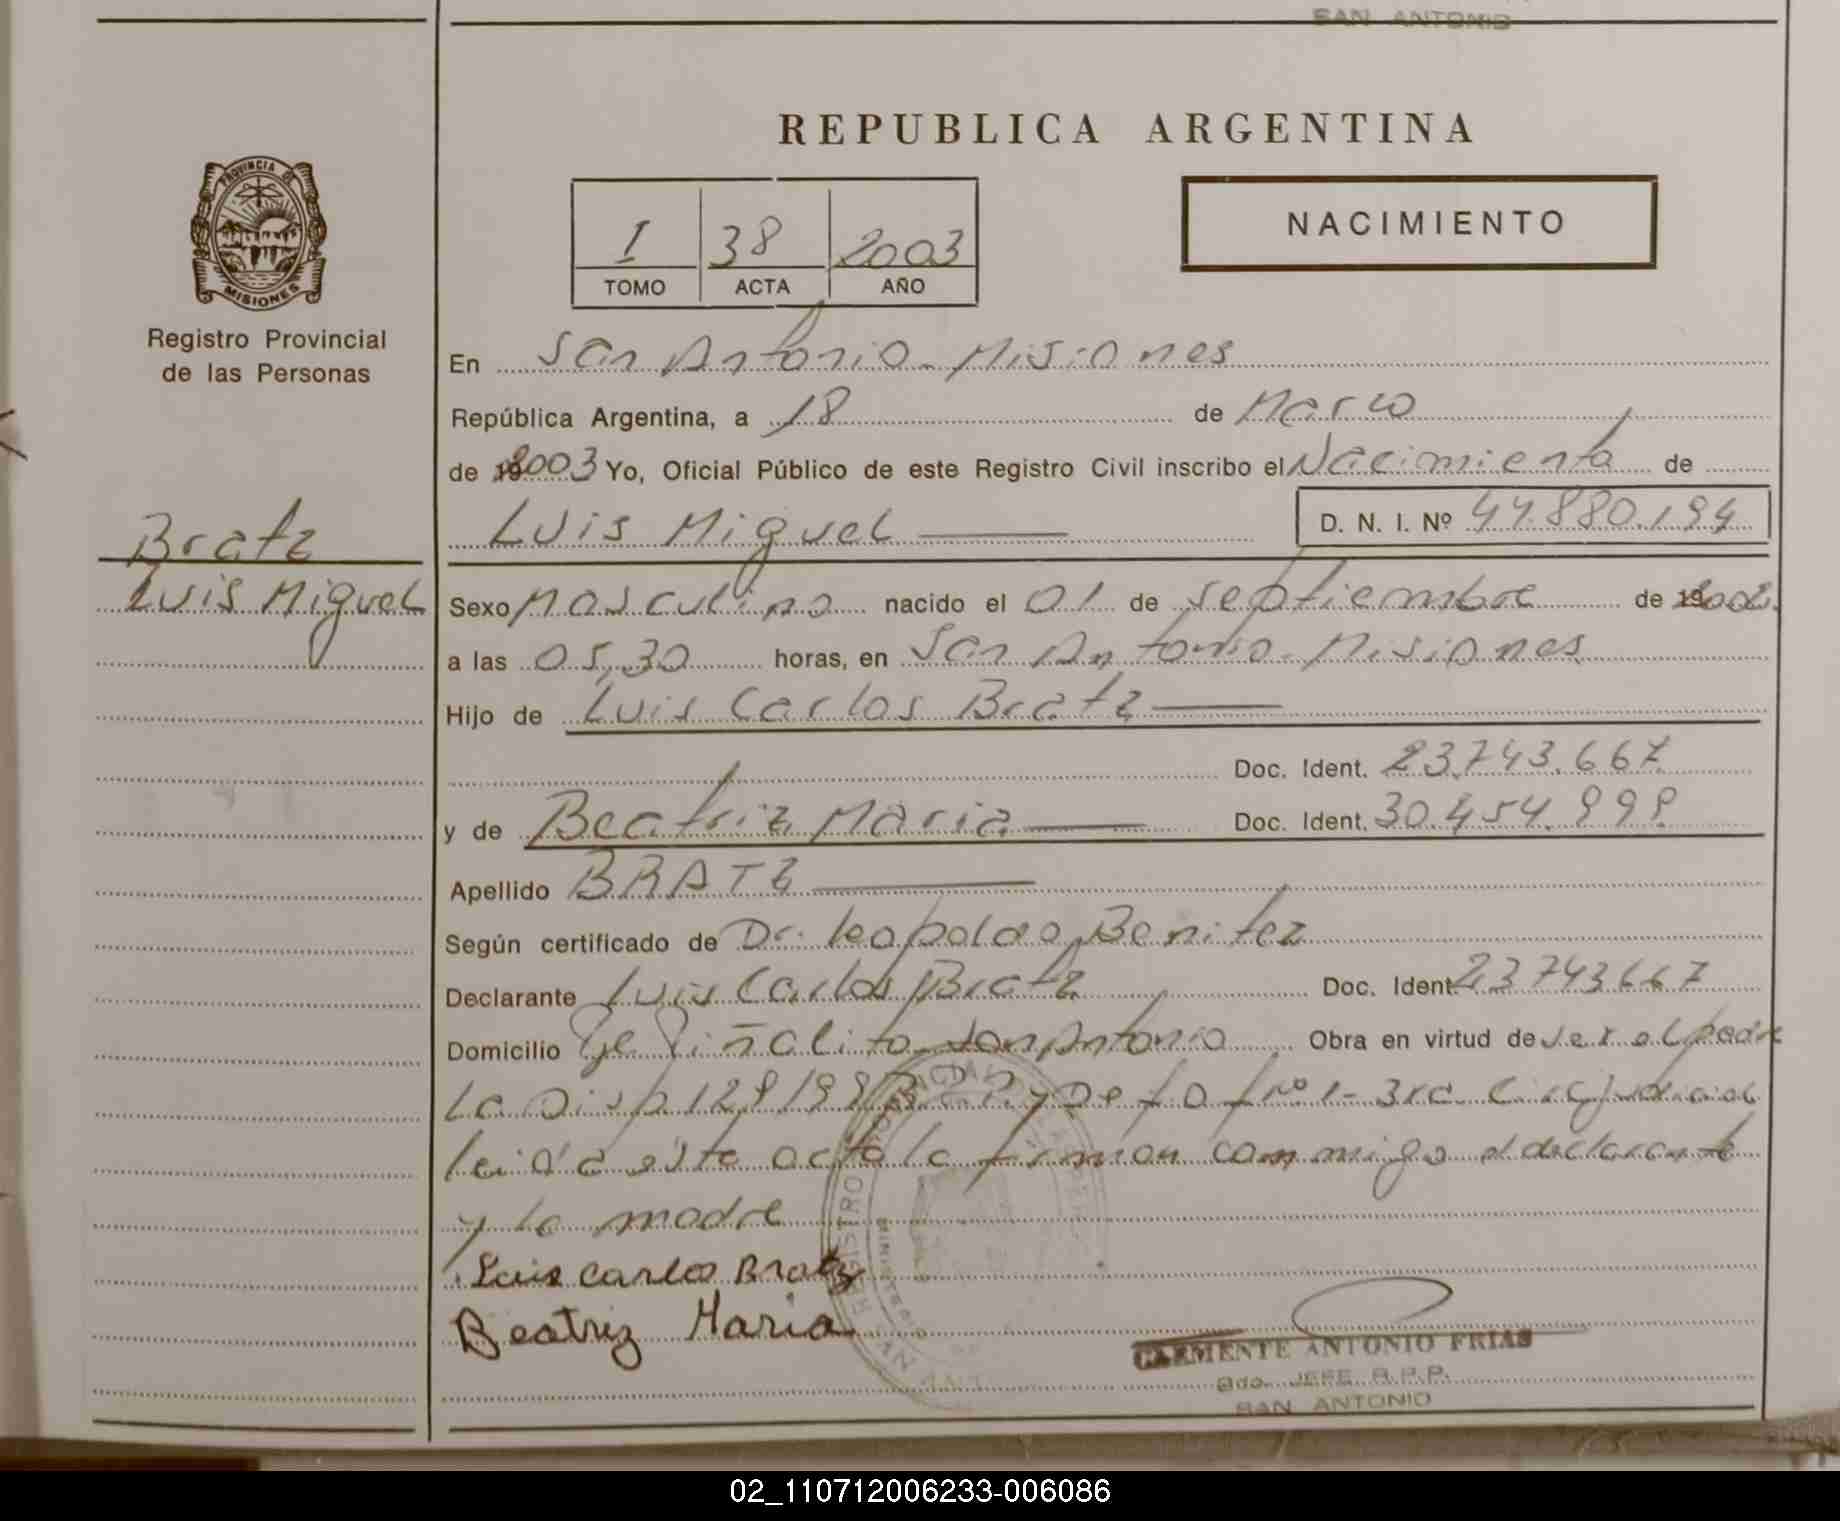 SAN ANTONIO
REPUBLICA ARGENTINA
PROVINCIA DE
MISIONES
Registro Provincial
de las Personas
I 38 2003
TOMO ACTA AÑO
NACIMIENTO
En San Antonio - Misiones
República Argentina, a 18 de Marzo
de 2003 Yo, Oficial Público de este Registro Civil inscribo el Nacimiento de
Luis Miguel D. N. I. Nº 44.880.194
Bratz
Luis Miguel
Sexo Masculino nacido el 01 de septiembre de 2002
a las 05,30 horas, en San Antonio - Misiones
Hijo de Luis Carlos Bratz
Doc. Ident. 23.743.667
y de Beatriz Maria Doc. Ident. 30.454.999
Apellido BRATZ
Según certificado de Dr. Leopoldo Benitez
Declarante Luis Carlos Bratz Doc. Ident. 23743667
Domicilio Pje Piñalito San Antonio Obra en virtud de ser el padre
La Disp 129/99 y Def Of Nº 1 - 3ra Circ judicial
leida esta acta la firman conmigo el declarante
y la madre
Luis Carlos Bratz
Beatriz Maria
CLEMENTE ANTONIO FRIAS
JEFE R.P.P.
SAN ANTONIO
02_110712006233-006086